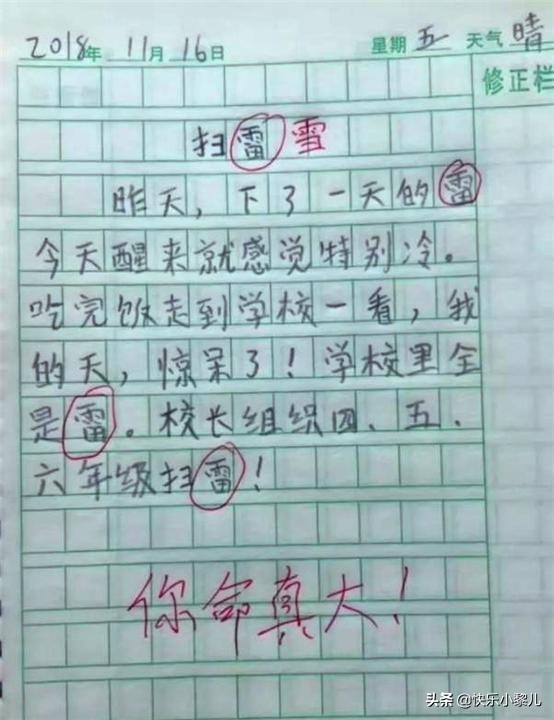 2018年 11月 16日 星期 五 天气 晴
修正栏
扫雷 雪
昨天，下了一天的雷
今天醒来就感觉特别冷。
吃完饭走到学校一看，我
的天，惊呆了！学校里全
是雷。校长组织四、五、
六年级扫雷！
你命真大！
头条 @快乐小黎儿